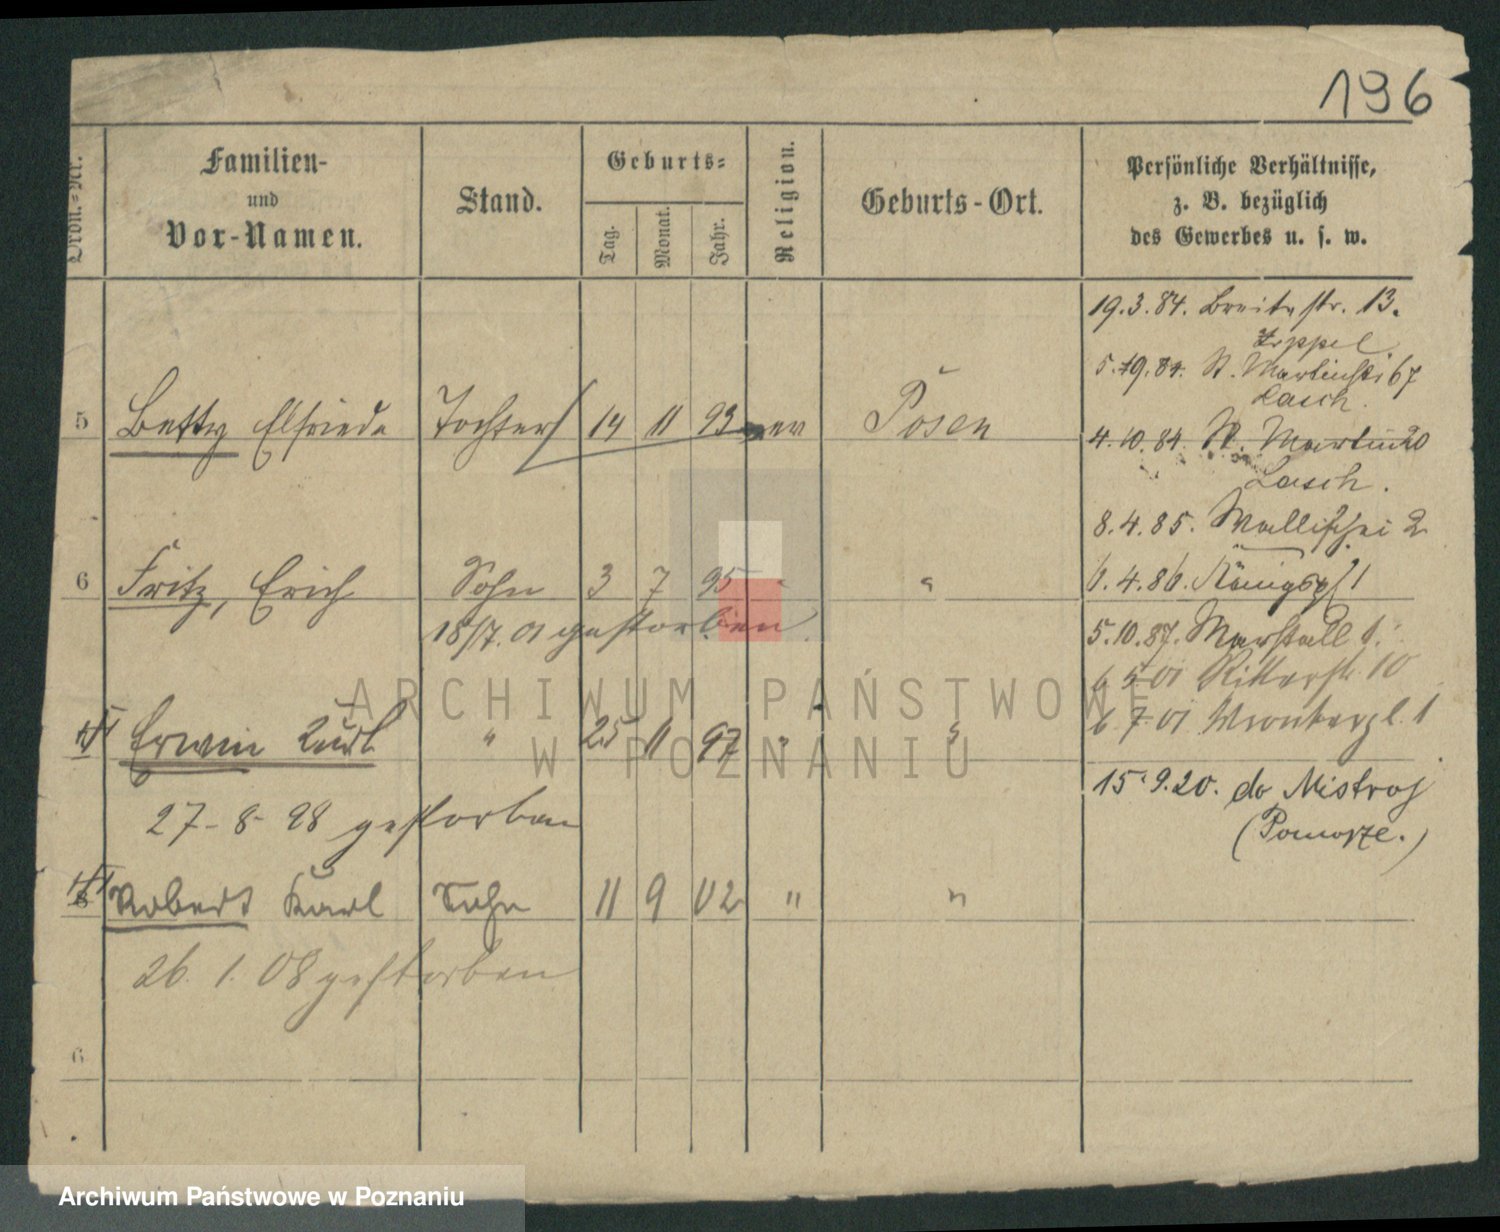 196
Ordn.=Nr.
Familien-
und
Vor-Namen.
Stand.
Geburts=
Tag.
Monat.
Jahr.
Religion.
Geburts-Ort.
Persönliche Verhältnisse,
z. B. bezüglich
des Gewerbes u. s. w.
19.3.84. Breitestr. 13.
Zippel
5.9.84. St. Martinstr 67
Lasch.
5 Betty Elfriede Tochter 14 11 93 ev Posen
4.10.84. St. Martin 20
Lasch.
8.4.85. Wallischei 2
6 Fritz, Erich Sohn 3 7 95 " "
6.4.86. Königspl 1
18/7.01 gestorben
5.10.87. Marstall 1.
6 5 01 Ritterstr. 10
6 7 01 Wronkerpl. 1
Erwin Kurt " 25 11 97 " "
15.9.20. do Mistroj
(Pomorze.)
27-8-98 gestorben
8 Robert Karl Sohn 11 9 02 " "
26. 1. 08 gestorben
6
ARCHIWUM PAŃSTWOWE
W POZNANIU
Archiwum Państwowe w Poznaniu